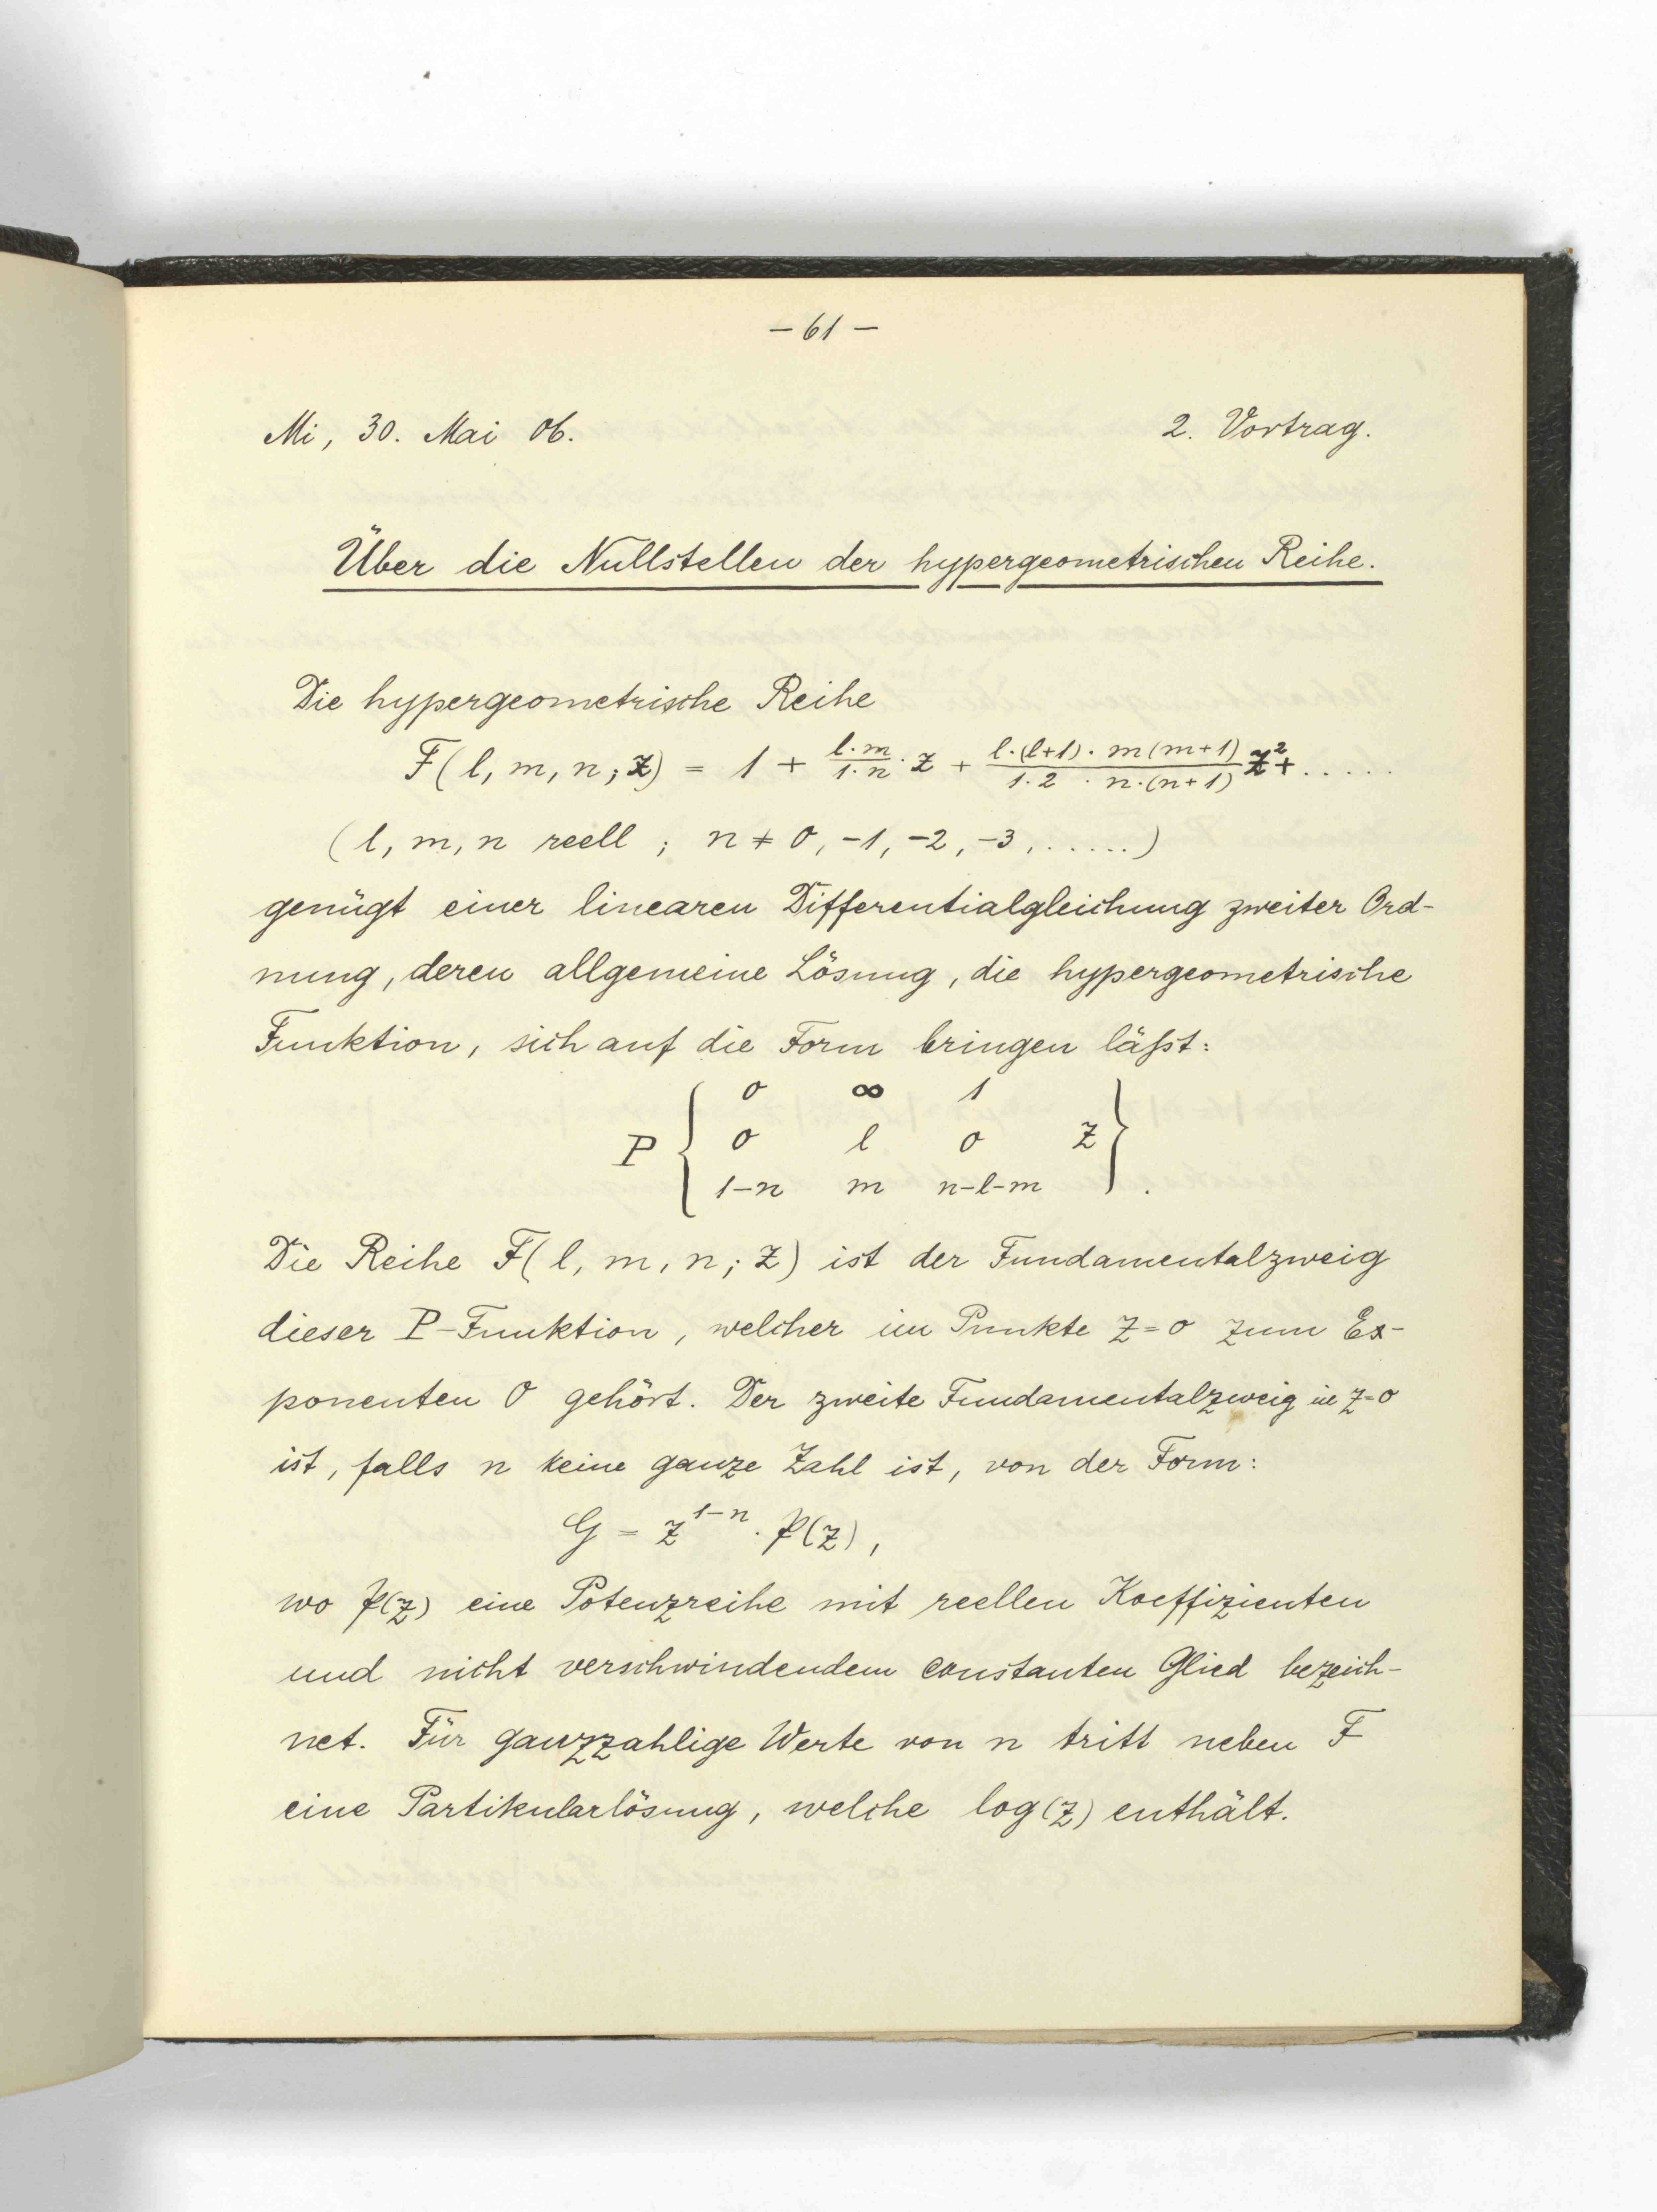 – 61 –
Mi, 30. Mai 06. 2. Vortrag.
Über die Nullstellen der hypergeometrischen Reihe.
Die hypergeometrische Reihe
F(l, m, n; z) = 1 + \frac{l·m}{1·n}·z + \frac{l·(l+1)·m(m+1)}{1·2·n·(n+1)} z² + .....
(l, m, n reell ; n ≠ 0, -1, -2, -3, .....)
genügt einer linearen Differentialgleichung zweiter Ord-
nung, deren allgemeine Lösung, die hypergeometrische
Funktion, sich auf die Form bringen läßt:
0 ∞ 1
P { 0 l 0 z }
1-n m n-l-m .
Die Reihe F(l, m, n; z) ist der Fundamentalzweig
dieser P-Funktion, welcher im Punkte z=0 zum Ex-
ponenten 0 gehört. Der zweite Fundamentalzweig in z=0
ist, falls n keine ganze Zahl ist, von der Form:
G = z^{1-n} · P(z),
wo P(z) eine Potenzreihe mit reellen Koeffizienten
und nicht verschwindendem constanten Glied bezeich-
net. Für ganzzahlige Werte von n tritt neben F
eine Partikularlösung, welche log(z) enthält.